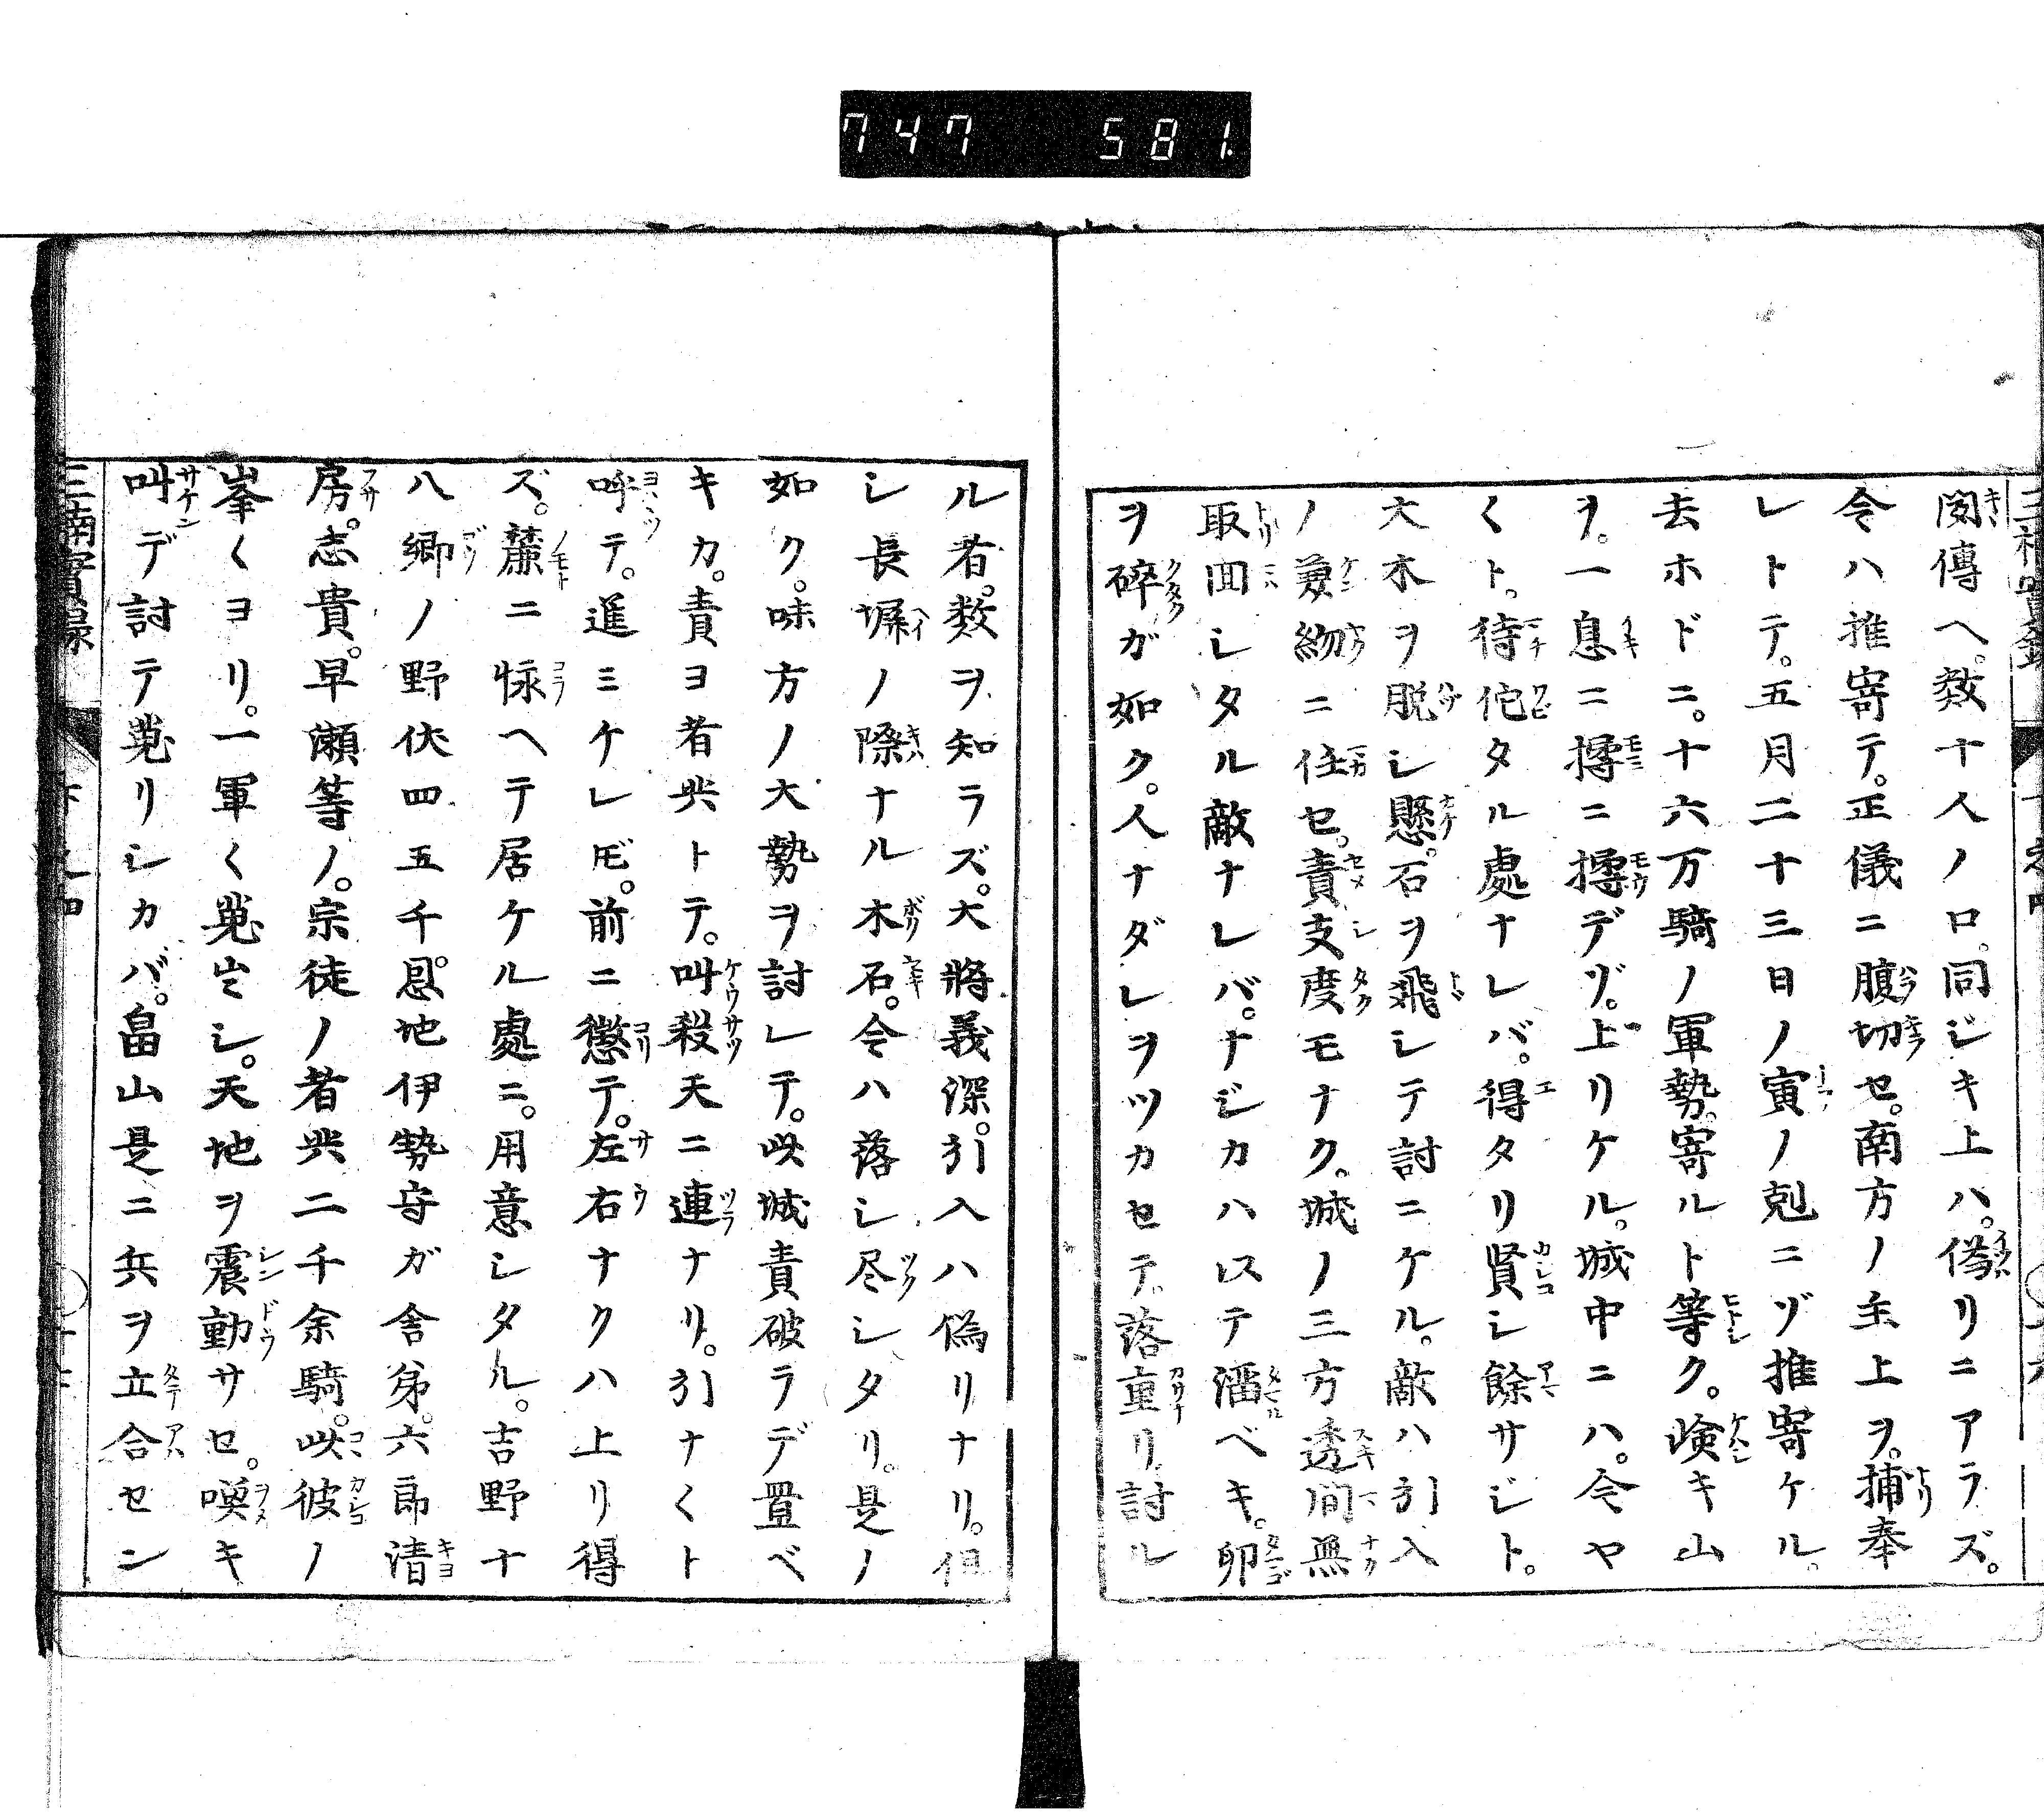 747 581
聞傳ヘ。数十人ノ口。同ジキ上ハ。偽リニアラズ。
今ハ推寄テ。正儀ニ腹切セ。南方ノ主上ヲ。捕奉
レトテ。五月二十三日ノ寅ノ剋ニゾ推寄ケル。
去ホドニ。十六万騎ノ軍勢。寄ルト等ク。嶮キ山
ヲ。一息ニ揉ニ揉デゾ。上リケル。城中ニハ。今ヤ
〱ト。待佗タル處ナレバ。得タリ賢シ餘サジト。
大木ヲ脱シ懸。石ヲ飛シテ討ニケル。敵ハ引入
ノ兼約ニ任セ。責支度モナク。城ノ三方透間無
取囬シタル敵ナレバ。ナジカハレステ溜ベキ。卵
ヲ碎ガ如ク。人ナダレヲツカセテ。落重リ。討ル
ル者。数ヲ知ラズ。大將義深。引入ハ偽リナリ。但
シ長塀ノ際ナル木石。今ハ落シ尽シタリ。是ノ
如ク。味方ノ大勢ヲ討レテ。此城責破ラデ置ベ
キカ。責ヨ者共トテ。叫殺天ニ連ナリ。引ナ〱ト
呼テ。進ミケレ𪜈。前ニ懲テ。左右ナクハ上リ得
ズ。麓ニ怺ヘテ居ケル處ニ。用意シタル。吉野十
八郷ノ野伏四五千。恩地伊勢守ガ舎弟。六郎清
房。志貴。早瀬等ノ。宗徒ノ者共二千余騎。此彼ノ
峯〱ヨリ。一軍〱嵬出シ。天地ヲ震動サセ。喚キ
叫デ討テ嵬リシカバ。畠山是ニ兵ヲ立合セン